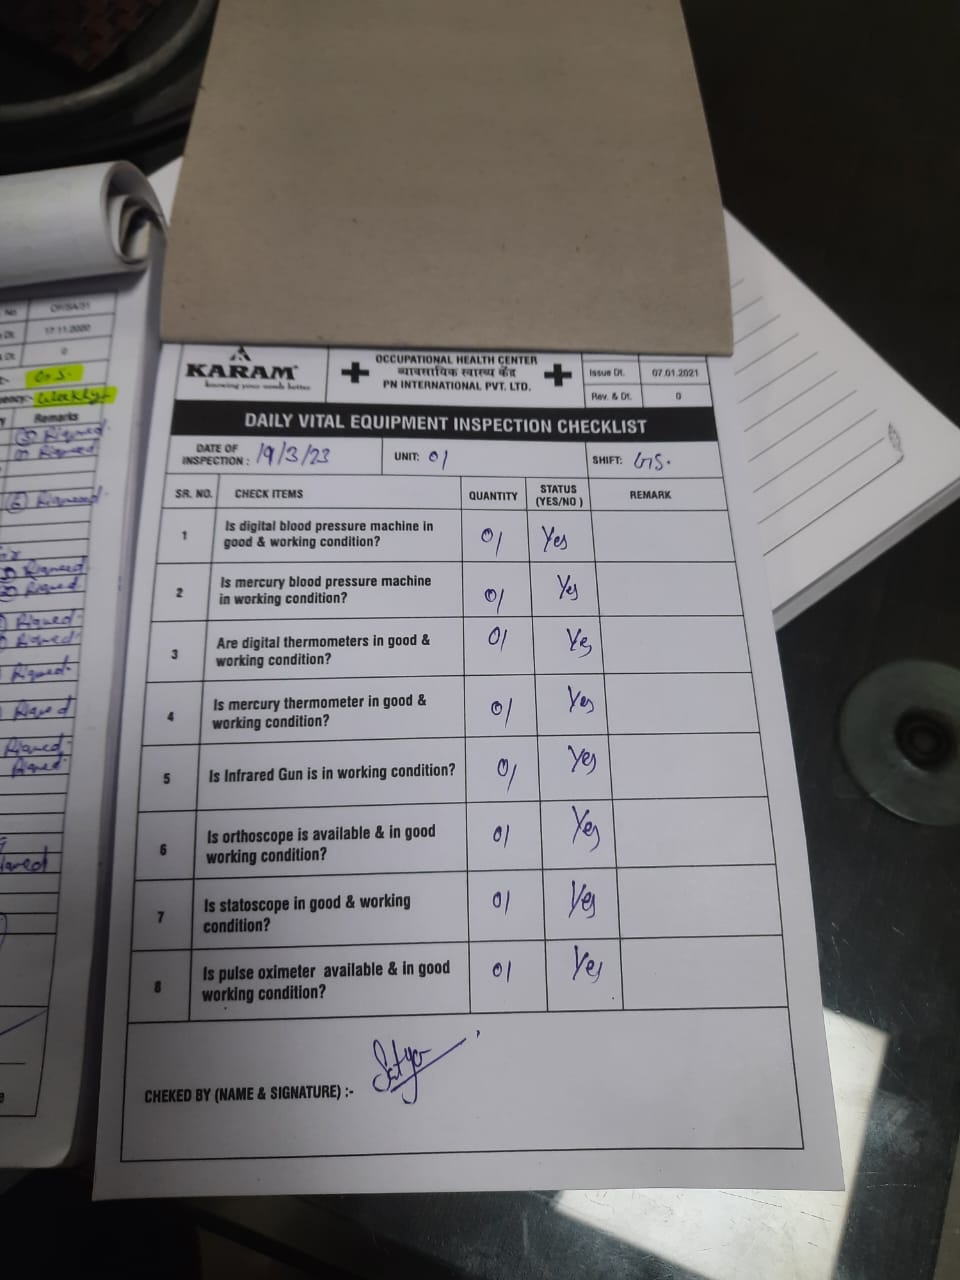 No
OP/SA/31
Dt.
17.11.2020
Dt.
0
G.S.
Weekly
Remarks
KARAM
knowing your needs better
OCCUPATIONAL HEALTH CENTER
व्यावसायिक स्वास्थ्य केंद्र
PN INTERNATIONAL PVT. LTD.
Issue Dt. 07.01.2021
Rev. & Dt. 0
DAILY VITAL EQUIPMENT INSPECTION CHECKLIST
DATE OF INSPECTION : 19/3/23 UNIT: 01 SHIFT: GS.
SR. NO. CHECK ITEMS QUANTITY STATUS (YES/NO ) REMARK
1 Is digital blood pressure machine in
good & working condition? 01 Yes
2 Is mercury blood pressure machine
in working condition? 01 Yes
3 Are digital thermometers in good &
working condition? 01 Yes
4 Is mercury thermometer in good &
working condition? 01 Yes
5 Is Infrared Gun is in working condition? 01 Yes
6 Is orthoscope is available & in good
working condition? 01 Yes
7 Is statoscope in good & working
condition? 01 Yes
8 Is pulse oximeter available & in good
working condition? 01 Yes
CHEKED BY (NAME & SIGNATURE) :- Satya